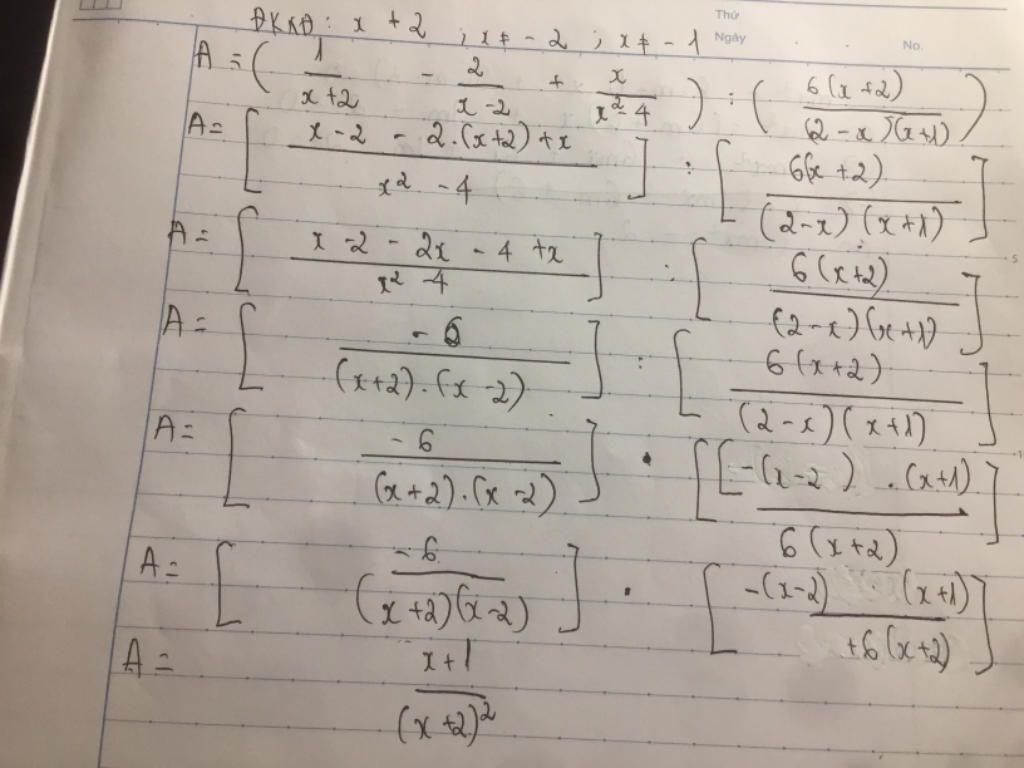 ĐKXĐ: x ≠ 2 ; x ≠ -2 ; x ≠ -1
Thứ
Ngày
No.
A = ( 1/(x+2) - 2/(x-2) + x/(x²-4) ) : ( 6(x+2)/((2-x)(x+1)) )
A = [ (x-2 - 2.(x+2) + x)/(x²-4) ] : [ 6(x+2)/((2-x)(x+1)) ]
A = [ (x-2-2x-4+x)/(x²-4) ] : [ 6(x+2)/((2-x)(x+1)) ]
A = [ -6/((x+2).(x-2)) ] : [ 6(x+2)/((2-x)(x+1)) ]
A = [ -6/((x+2).(x-2)) ] . [ [-(x-2).(x+1)/(6(x+2)) ]
A = [ -6/((x+2)(x-2)) ] . [ -(x-2).(x+1)/(+6(x+2)) ]
A = (x+1)/(x+2)²
5